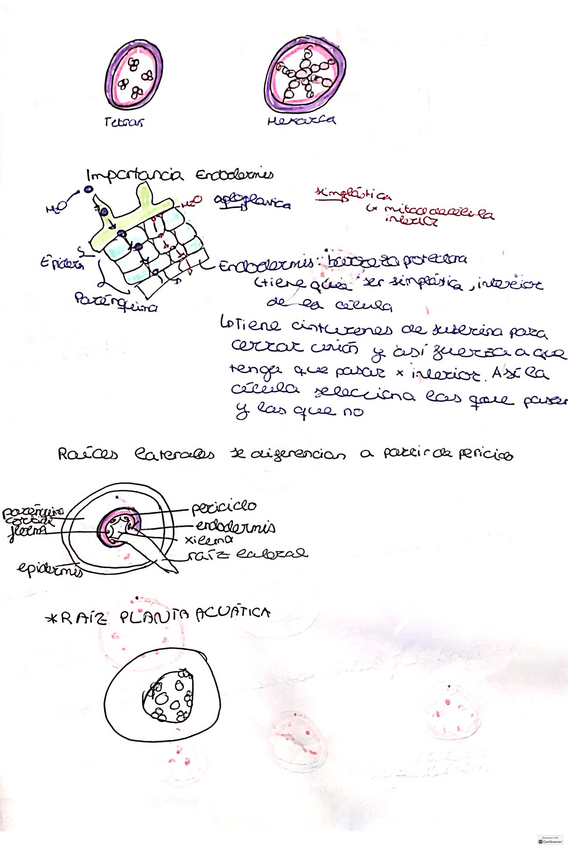 Tetrarca
Hexarca
Importancia Endodermis
H₂O
H₂O
apoplástica
simplástica
Epidermis
Parénquima
Endodermis: barrera protectora
tiene que ser simplástica, interior
de la célula
tiene cinturones de suberina para
cerrar unión y así fuerza a que
tenga que pasar x interior. Así la
célula selecciona las que pasan
y las que no
Raíces laterales se diferencian a partir de periciclo
parénquima
cortical
floema
epidermis
periciclo
endodermis
xilema
raíz lateral
*RAÍZ PLANTA ACUÁTICA
CamScanner